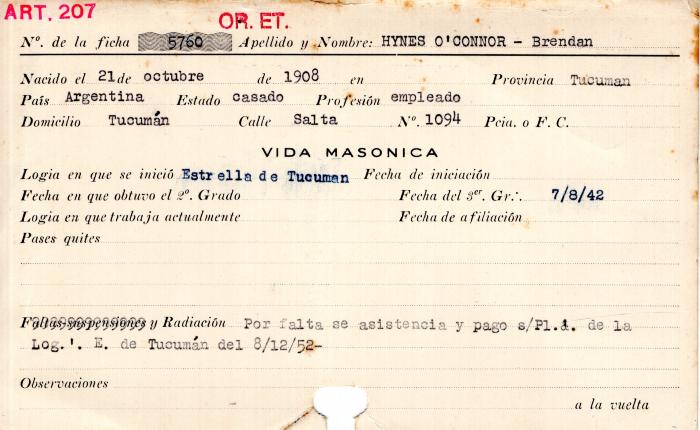 ART. 207
OR. ET.
Nº. de la ficha 5760 Apellido y Nombre: HYNES O'CONNOR - Brendan
Nacido el 21 de octubre de 1908 en Provincia Tucuman
País Argentina Estado casado Profesión empleado
Domicilio Tucumán Calle Salta Nº. 1094 Pcia. o F. C.
VIDA MASONICA
Logia en que se inició Estrella de Tucuman Fecha de iniciación
Fecha en que obtuvo el 2º. Grado Fecha del 3er. Gr.·. 7/8/42
Logia en que trabaja actualmente Fecha de afiliación
Pases quites
Faltas-suspensiones y Radiación Por falta se asistencia y pago s/Pl.á. de la
Log.'. E. de Tucumán del 8/12/52-
Observaciones
a la vuelta